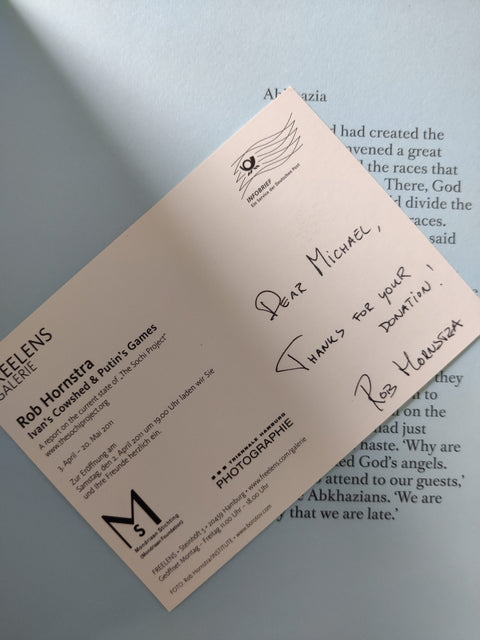 Abkhazia
had created the
vened a great
the races that
There, God
divide the
races.
said
they
to
on the
had just
haste. 'Why are
God's angels.
attend to our guests,'
Abkhazians. 'We are
that we are late.'
INFOBRIEF
Ein Service der Deutschen Post
DEAR MICHAEL,
THANKS FOR YOUR
DONATION!
ROB HORNSTRA
FREELENS
GALERIE
Rob Hornstra
Ivan's Cowshed & Putin's Games
A report on the current state of „The Sochi Project"
www.thesochiproject.org
3. April – 20. Mai 2011
Zur Eröffnung am
Samstag, den 2. April 2011 um 19.00 Uhr laden wir Sie
und Ihre Freunde herzlich ein.
M
S
Mondriaan Stichting
(Mondriaan Foundation)
TRIENNALE HAMBURG
PHOTOGRAPHIE
FREELENS • Steinhöft 5 • 20459 Hamburg • www.freelens.com/galerie
Geöffnet Montag – Freitag 11.00 Uhr – 18.00 Uhr
FOTO: Rob Hornstra/INSTITUTE •